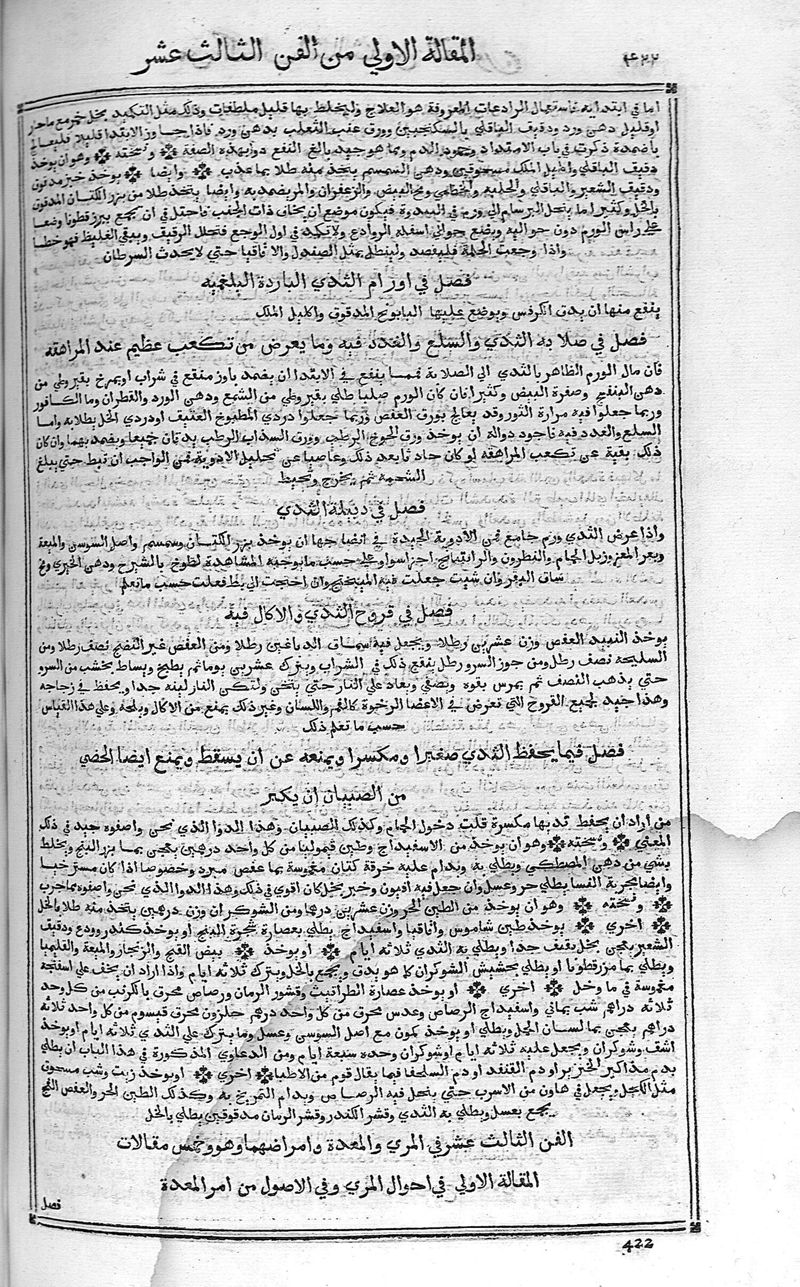 المقالة الاولي من الفن الثالث عشر
٤٢٢
اما في ابتدايه فاستعمال الرادعات المعروفة هو العلاج وليخلط بها قليل ملطفات وذلك مثل التكميد بخل خمر مع ماء حار
او قليل دهن ورد ودقيق الباقلي بالسكنجبين وورق عنب الثعلب بدهن ورد فاذا جاوز الابتدا قليلا فليعالج
باضمدة ذكرت في باب الامتداد وجمود الدم ومما هو جيد بالغ النفع دوا بهذه الصفة ونسخته وهو ان يوخذ
دقيق الباقلي واكليل الملك مسحوقين ودهن السمسم يتخذ منه طلا بما عذب وايضا يوخذ خبز مدقوق
ودقيق الشعير والباقلي والحلبة والخطمي ومح البيض والزعفران والمر يضمد به وايضا يتخذ طلا من بزر الكتان المدقوق
بالخل وكثيرا ما ينحل البرسام الي ورم في الثدوة فيكون موضع ان يخاف ذات الجنب فاحتفل في ان تجمع ببزر قطونا وضعا
علي راس الورم دون حواليه ويوضع حوالي اسفله الروادع ولا تكمد في اول الوجع فتحلل الرقيق ويبقي الغليظ فهو خطا
واذا وجعت الحلمة فليفصد وليطلي بمثل الصندل والاقاقيا حتي لا يحدث السرطان
فصل في اورام الثدي الباردة البلغمية
ينفع منها ان يدق الكرفس ويوضع عليها البابونج المدقوق واكليل الملك
فصل في صلابه الثدي والسلع والغدد فيه وما يعرض من تكعب عظيم عند المراهقه
فان مال الورم الظاهر بالثدي الي الصلابة فمما ينفع في الابتدا ان يضمد بارز منقع في شراب او يمرخ بقيروطي من
دهن البنفسج وصفرة البيض وكثيرا فان كان الورم صلبا طلي بقيروطي من الشمع ودهن الورد والقطران وما الكافور
وربما جعلوا فيه مرارة الثور وقد يعالج بورق العفص وربما جعلوا دردي المطبوخ العتيق او دردي الخل يطلابه واما
السلع والغدد فيه فاجود دوالة ان يوخذ ورق الخوخ الرطب وورق السداب الرطب يدقان جميعا ويضمد بهما وان كان
ذلك بقية عن تكعب المراهقه او كان حادثا بعد ذلك وعاصيا عن تحليل الادوية فمن الواجب ان تبط حتي يبلغ
الشحمة ثم يخرج ويخيط
فصل في دبيلة الثدي
واذا عرض للثدي ورم جامع فمن الادوية الجيدة في انضاجها ان يوخذ بزر الكتان وسمسم واصل السوسن والميعة
وبعر المعز وزبل الحمام والنطرون والراتينج اجزا سوا وعلي حسب ما يوجبه المشاهدة لطوخ بالشيرج ودهن الخيري ومخ
ساق البقر وان شيت جعلت فيه الميبختج وان احتجت الي بط فعلت حسب ما تعلم
فصل في قروح الثدي والاكال فيه
يوخذ النبيد العفص وزن عشرين رطلا ويجعل فيه سماق الدباغين رطلا ومن العفص غير النضج نصف رطلا ومن
السليخة نصف رطل ومن جوز السرو رطل ينقع ذلك في الشراب ويترك عشرين يوما ثم يطبخ ويساط بخشب من السرو
حتي يذهب النصف ثم يمرس بقوه ويصفي ويعاد علي النار حتي يثخن ولتكن النار لينه جدا ويحفظ في زجاجه
وهذا جيد لجميع القروح التي تعرض في الاعضا الرخوة كالفم واللسان وغير ذلك يمنع من الاكال ويلحه وعلي هذا القياس
حسب ما تعلم ذلك
فصل فيما يحفظ الثدي صغيرا ومكسرا ويمنعه عن ان يسقط ويمنع ايضا الخصي
من الصبيان ان يكبر
من اراد ان يحفظ ثديها مكسرة قلت دخول الحمام وكذلك الصبيان وهذا الدوا الذي نحن واصفوه جيد في ذلك
المعني ونسخته وهو ان يوخذ من الاسفيداج وطين قيموليا من كل واحد درهمين يعجن بما بزر البنج ويخلط
بشي من دهن المصطكي ويطلي به ويدام عليه خرقة كتان مغموسة بما عفص مبرد وخصوصا اذا كان مسترخيا
وايضا مجربة للنسا يطلي حر وعسل وان جعل فيه افيون وخبر بخل كان اقوي في ذلك وهذا الدوا الذي نحن واصفوه مما جرب
ونسخته وهو ان يوخذ من الطين الحر وزن عشرين درهما ومن الشوكران وزن درهمين يتخذ منه طلا بالخل
اخري يوخذ طين شاموس واقاقيا واسفيداج يطلي بعصارة شجرة البنج او يوخذ كندر وودع ودقيق
الشعير يعجن بخل ثقيف جدا ويطلي به الثدي ثلاثه ايام او يوخذ بيض القبج والزنجار والميعة والقليميا
ويطلي بما بزر قطونا او يطلي بحشيش الشوكران كما هو يدق ويجمع بالخل ويترك ثلاثه ايام واذا اراد ان يجف علي اسفنجة
مغموسة في ما وخل اخري او يوخذ عصارة الطراثيث وقشور الرمان ورصاص محرق بالكبريت من كل وحد
ثلاثه دراهم شب يماني واسفيداج الرصاص وعدس محرق من كل واحد درهم حلزون محرق قيسوم من كل واحد ثلاثة
دراهم يعجن بما لسان الحمل ويطلي او يوخذ كمون مع اصل السوسن وعسل وما يترك علي الثدي ثلاثه ايام او يوخذ
اشق وشوكران ويجعل عليه ثلاثه ايام او شوكران وحده سبعة ايام ومن الدعاوي المذكورة في هذا الباب ان يطلي
بدم مذاكير الخنزير او دم القنفد او دم السلحفا فيما يقال قوم من الاطبا اخري او يوخذ زيت وشب مسحوق
مثل الكحل ويجعل في هاون من الاسرب حتي ينحل فيه الرصاص ويدام التمريخ به وكذلك الطين الحر والعفص الفج
يجمع بعسل ويطلي به الثدي وقشر الكندر وقشر الرمان مدقوقين يطلي بالخل
الفن الثالث عشر في المري والمعدة وامراضهما وهو وخمس مقالات
المقالة الاولي في احوال المري وفي الاصول من امر المعدة
فصل
422